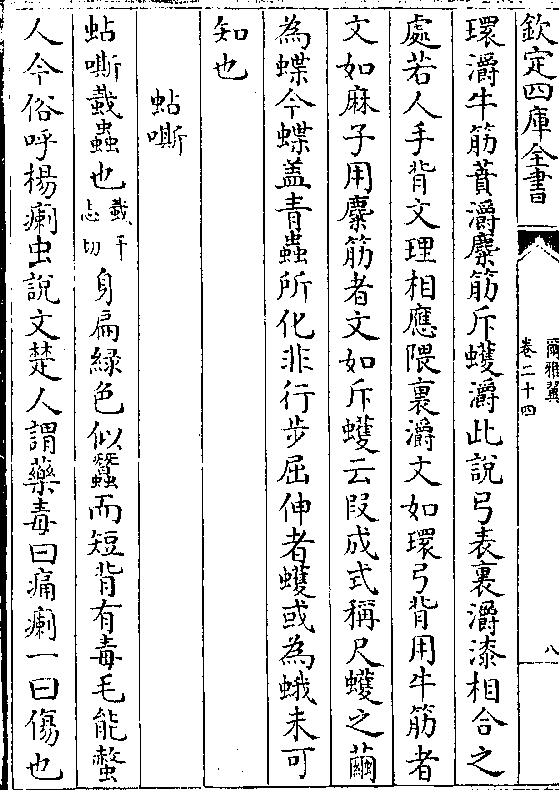 欽定四庫全書
爾雅翼
卷二十四
八
環灂牛筋蕡灂麋筋斥蠖灂此說弓表裏灂漆相合之
處若人手背文理相應隈裏灂文如環弓背用牛筋者
文如麻子用麋筋者文如斥蠖云段成式稱尺蠖之繭
為蝶今蝶盖青蟲所化非行步屈伸者蠖或為蛾未可
知也
蛄㗭
蛄㗭蛓蟲也蛓千志切身扁綠色似蠶而短背有毒毛能螫
人今俗呼楊瘌虫說文楚人謂藥毒曰痛瘌一曰傷也